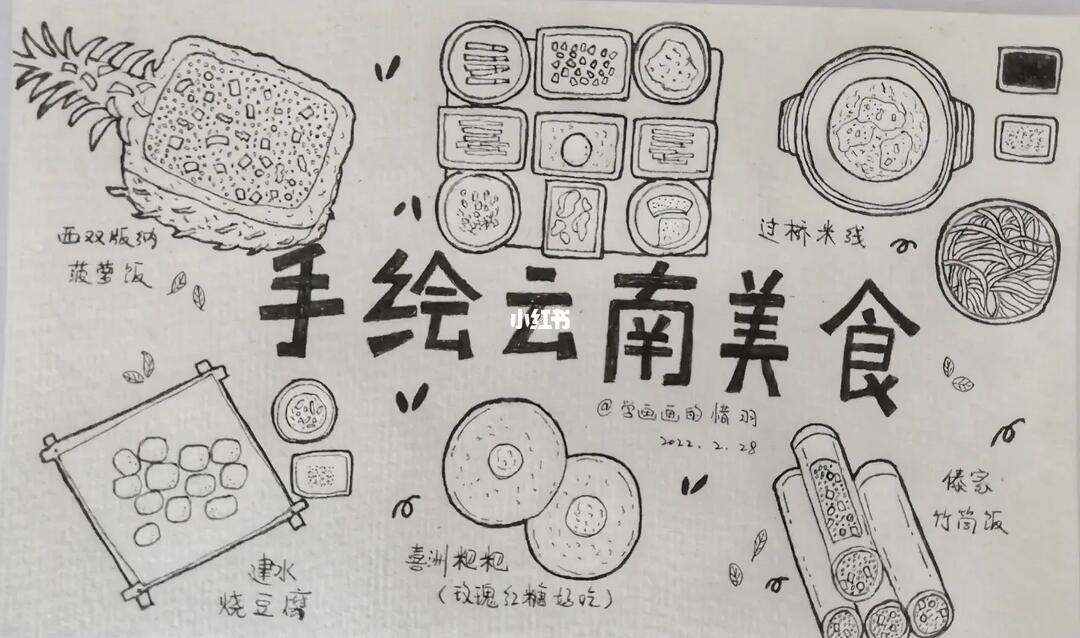 西双版纳
菠萝饭
过桥米线
手绘云南美食
小红书
@学画画的惜羽
2022.2.28
建水
烧豆腐
喜洲粑粑
(玫瑰红糖好吃)
傣家
竹筒饭